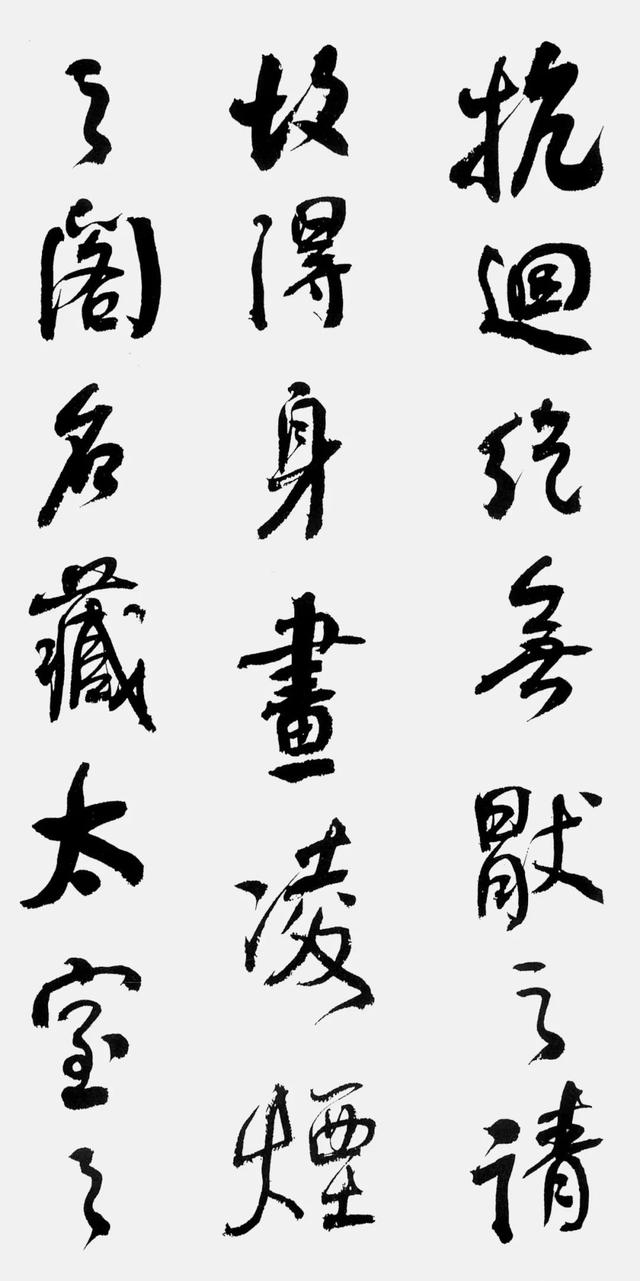 抗迴紇無猒之請
故得身畫凌煙
之閣名藏太室之